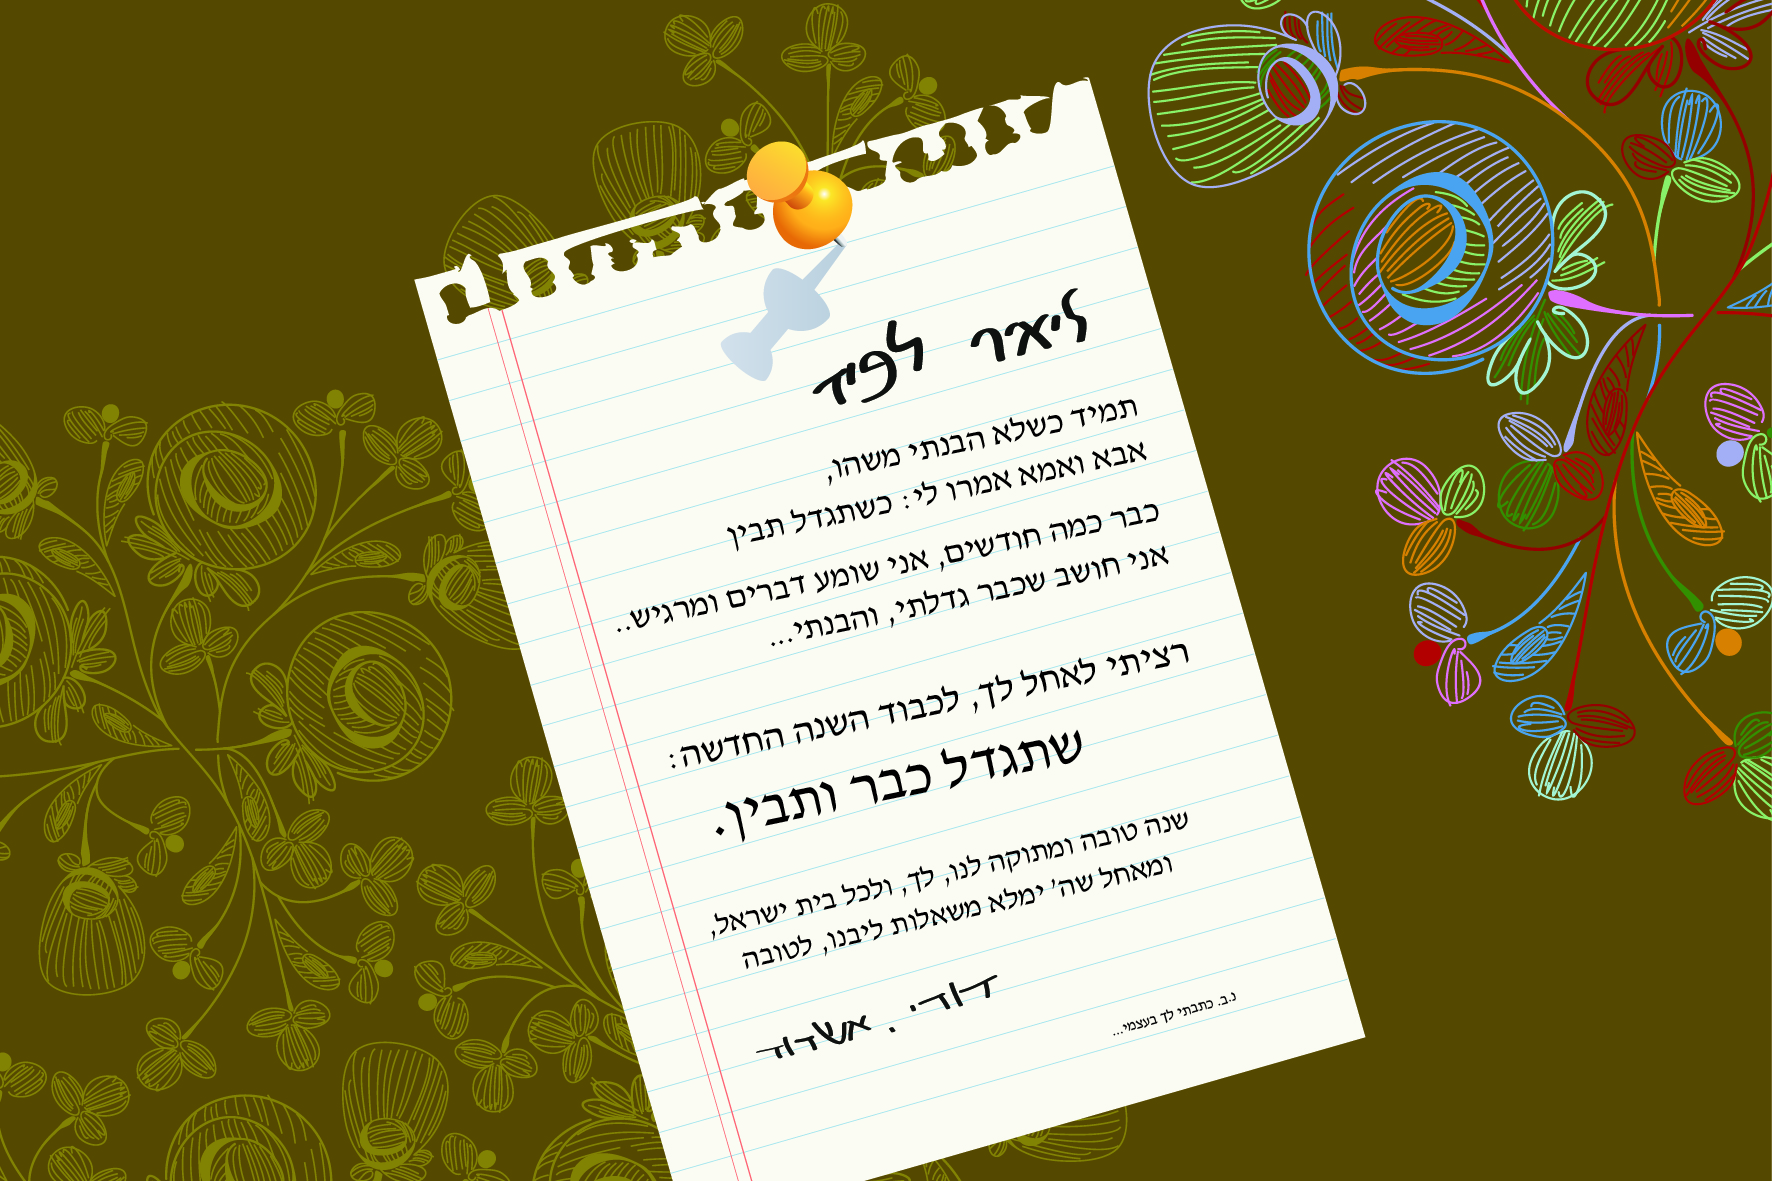 ליאר לפיד
תמיד כשלא הבנתי משהו,
אבא ואמא אמרו לי: כשתגדל תבין
כבר כמה חודשים, אני שומע דברים ומרגיש..
אני חושב שכבר גדלתי, והבנתי...
רציתי לאחל לך, לכבוד השנה החדשה:
שתגדל כבר ותבין.
שנה טובה ומתוקה לנו, לך, ולכל בית ישראל,
ומאחל שה' ימלא משאלות ליבנו, לטובה
דוד י. אשדוד
נ.ב. כתבתי לך בעצמי...